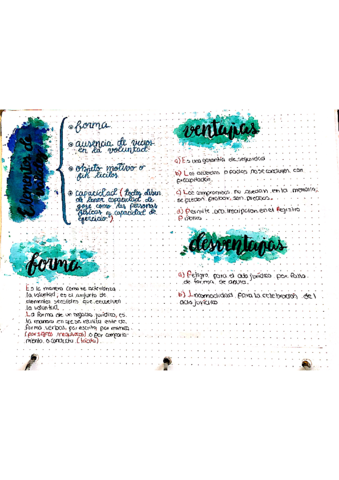 forma
ausencia de vicios
en la voluntad
objeto motivo o
fin lícitos
capacidad (todos deben
de tener capacidad de
goce como las personas
físicas y capacidad de
ejercicio)
ventajas
a) Es una garantía de seguridad
b) Los acuerdos o pactos no se con
precipitación
c) Los compromisos no quedan en la memoria,
se pueden probar, son precisos.
d) Permite una inscripción en el Registro
Público
forma
Es la manera como se exterioriza
la voluntad, es el conjunto de
elementos sensibles que envuelven
la voluntad.
La forma de un negocio jurídico, es
la manera en que se realiza este de
forma verbal, por escrito por mímica
(por signos inequívocos) o por comporta-
miento o conducta (tácito)
desventajas
a) Peligro para el acto jurídico por falta
de forma se anula.
b) Incomodidad para la celebración del
acto jurídico